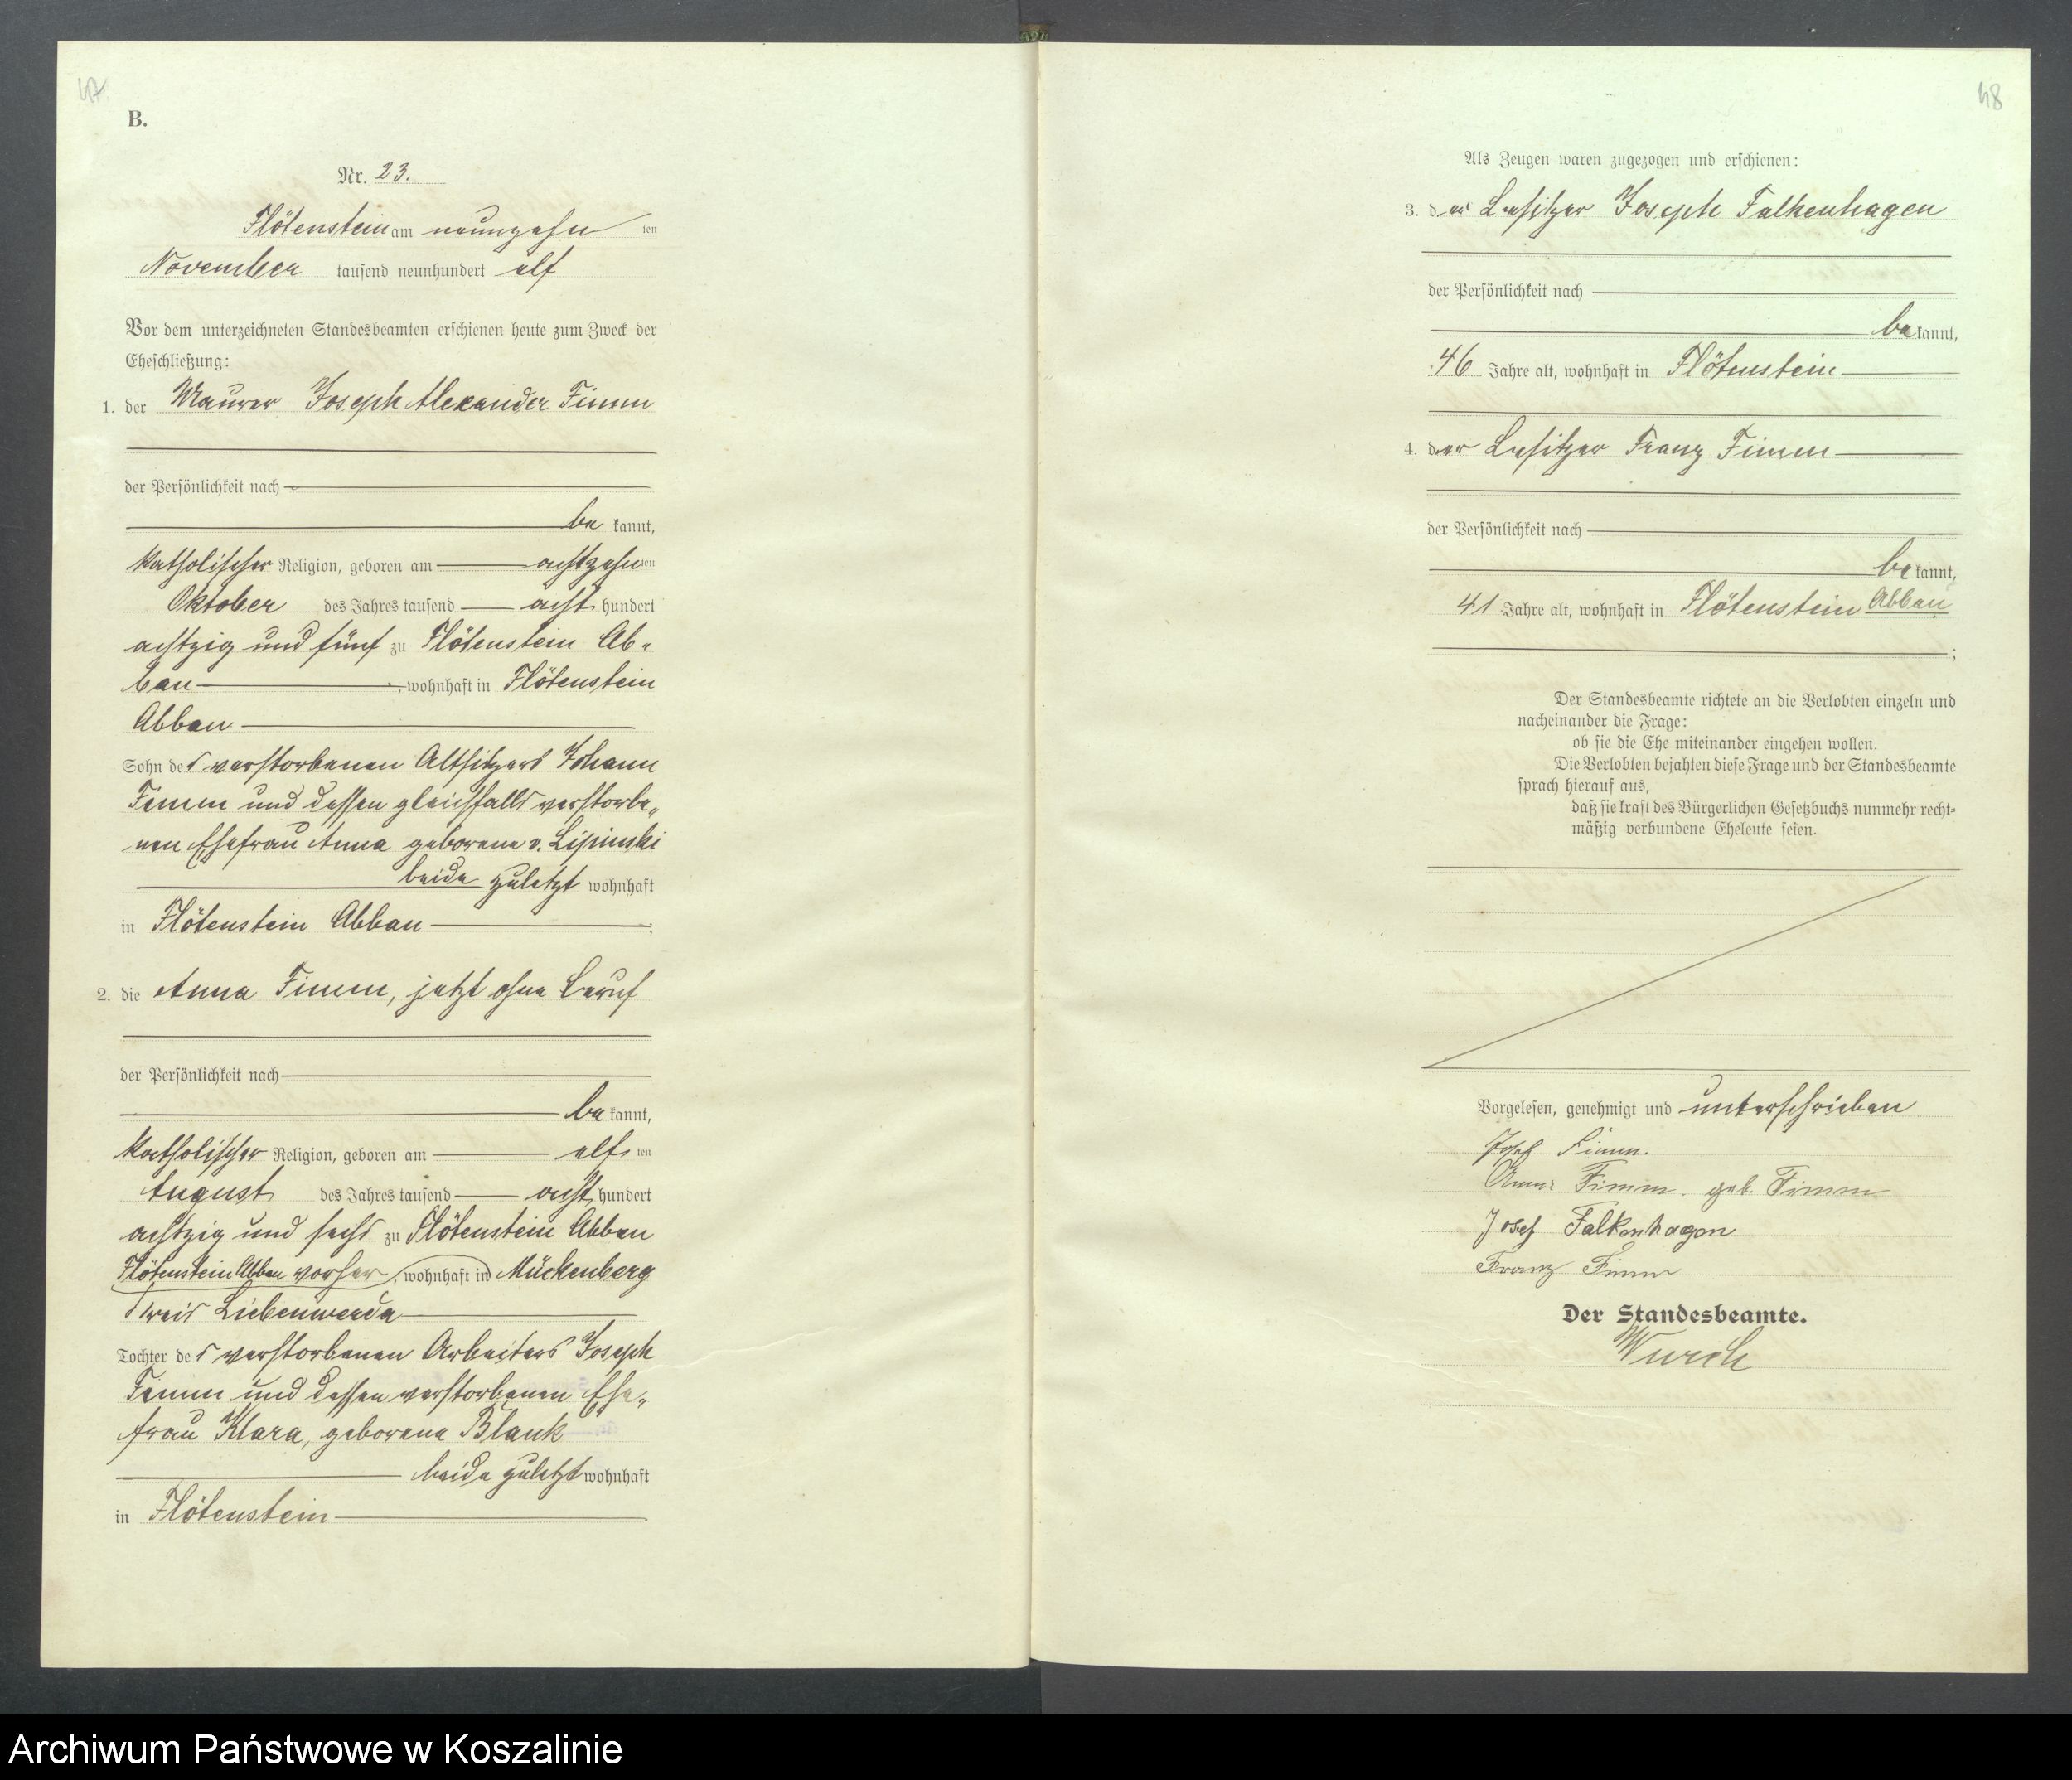 47
B.
Nr. 23.
Flötenstein am neunzehnten
November tausend neunhundert elf
Vor dem unterzeichneten Standesbeamten erschienen heute zum Zweck der
Eheschließung:
1. der Maurer Joseph Alexander Fimm
der Persönlichkeit nach
be kannt,
katholischer Religion, geboren am achtzehnten
Oktober des Jahres tausend acht hundert
achtzig und fünf zu Flötenstein Ab-
bau, wohnhaft in Flötenstein
Abbau
Sohn des verstorbenen Altsitzers Johann
Fimm und dessen gleichfalls verstorbe-
nen Ehefrau Anna geborene v. Lipinski
beide zuletzt wohnhaft
in Flötenstein Abbau;
2. die Anna Fimm, jetzt ohne Beruf
der Persönlichkeit nach
be kannt,
katholischer Religion, geboren am elften
August des Jahres tausend acht hundert
achtzig und sechs zu Flötenstein Abbau
Flötenstein Abbau vorher, wohnhaft in Mückenberg
Kreis Liebenwerda
Tochter des verstorbenen Arbeiters Joseph
Fimm und dessen verstorbenen Ehe-
frau Klara, geborene Blank
beide zuletzt wohnhaft
in Flötenstein
48
Als Zeugen waren zugezogen und erschienen:
3. der Besitzer Joseph Falkenhagen
der Persönlichkeit nach
be kannt,
46 Jahre alt, wohnhaft in Flötenstein
4. der Besitzer Franz Fimm
der Persönlichkeit nach
be kannt,
41 Jahre alt, wohnhaft in Flötenstein Abbau
;
Der Standesbeamte richtete an die Verlobten einzeln und
nacheinander die Frage:
ob sie die Ehe miteinander eingehen wollen.
Die Verlobten bejahten diese Frage und der Standesbeamte
sprach hierauf aus,
daß sie kraft des Bürgerlichen Gesetzbuchs nunmehr recht-
mäßig verbundene Eheleute seien.
Vorgelesen, genehmigt und unterschrieben
Josef Fimm.
Anna Fimm. geb. Fimm
Josef Falkenhagen
Franz Fimm
Der Standesbeamte.
Wurch
Archiwum Państwowe w Koszalinie